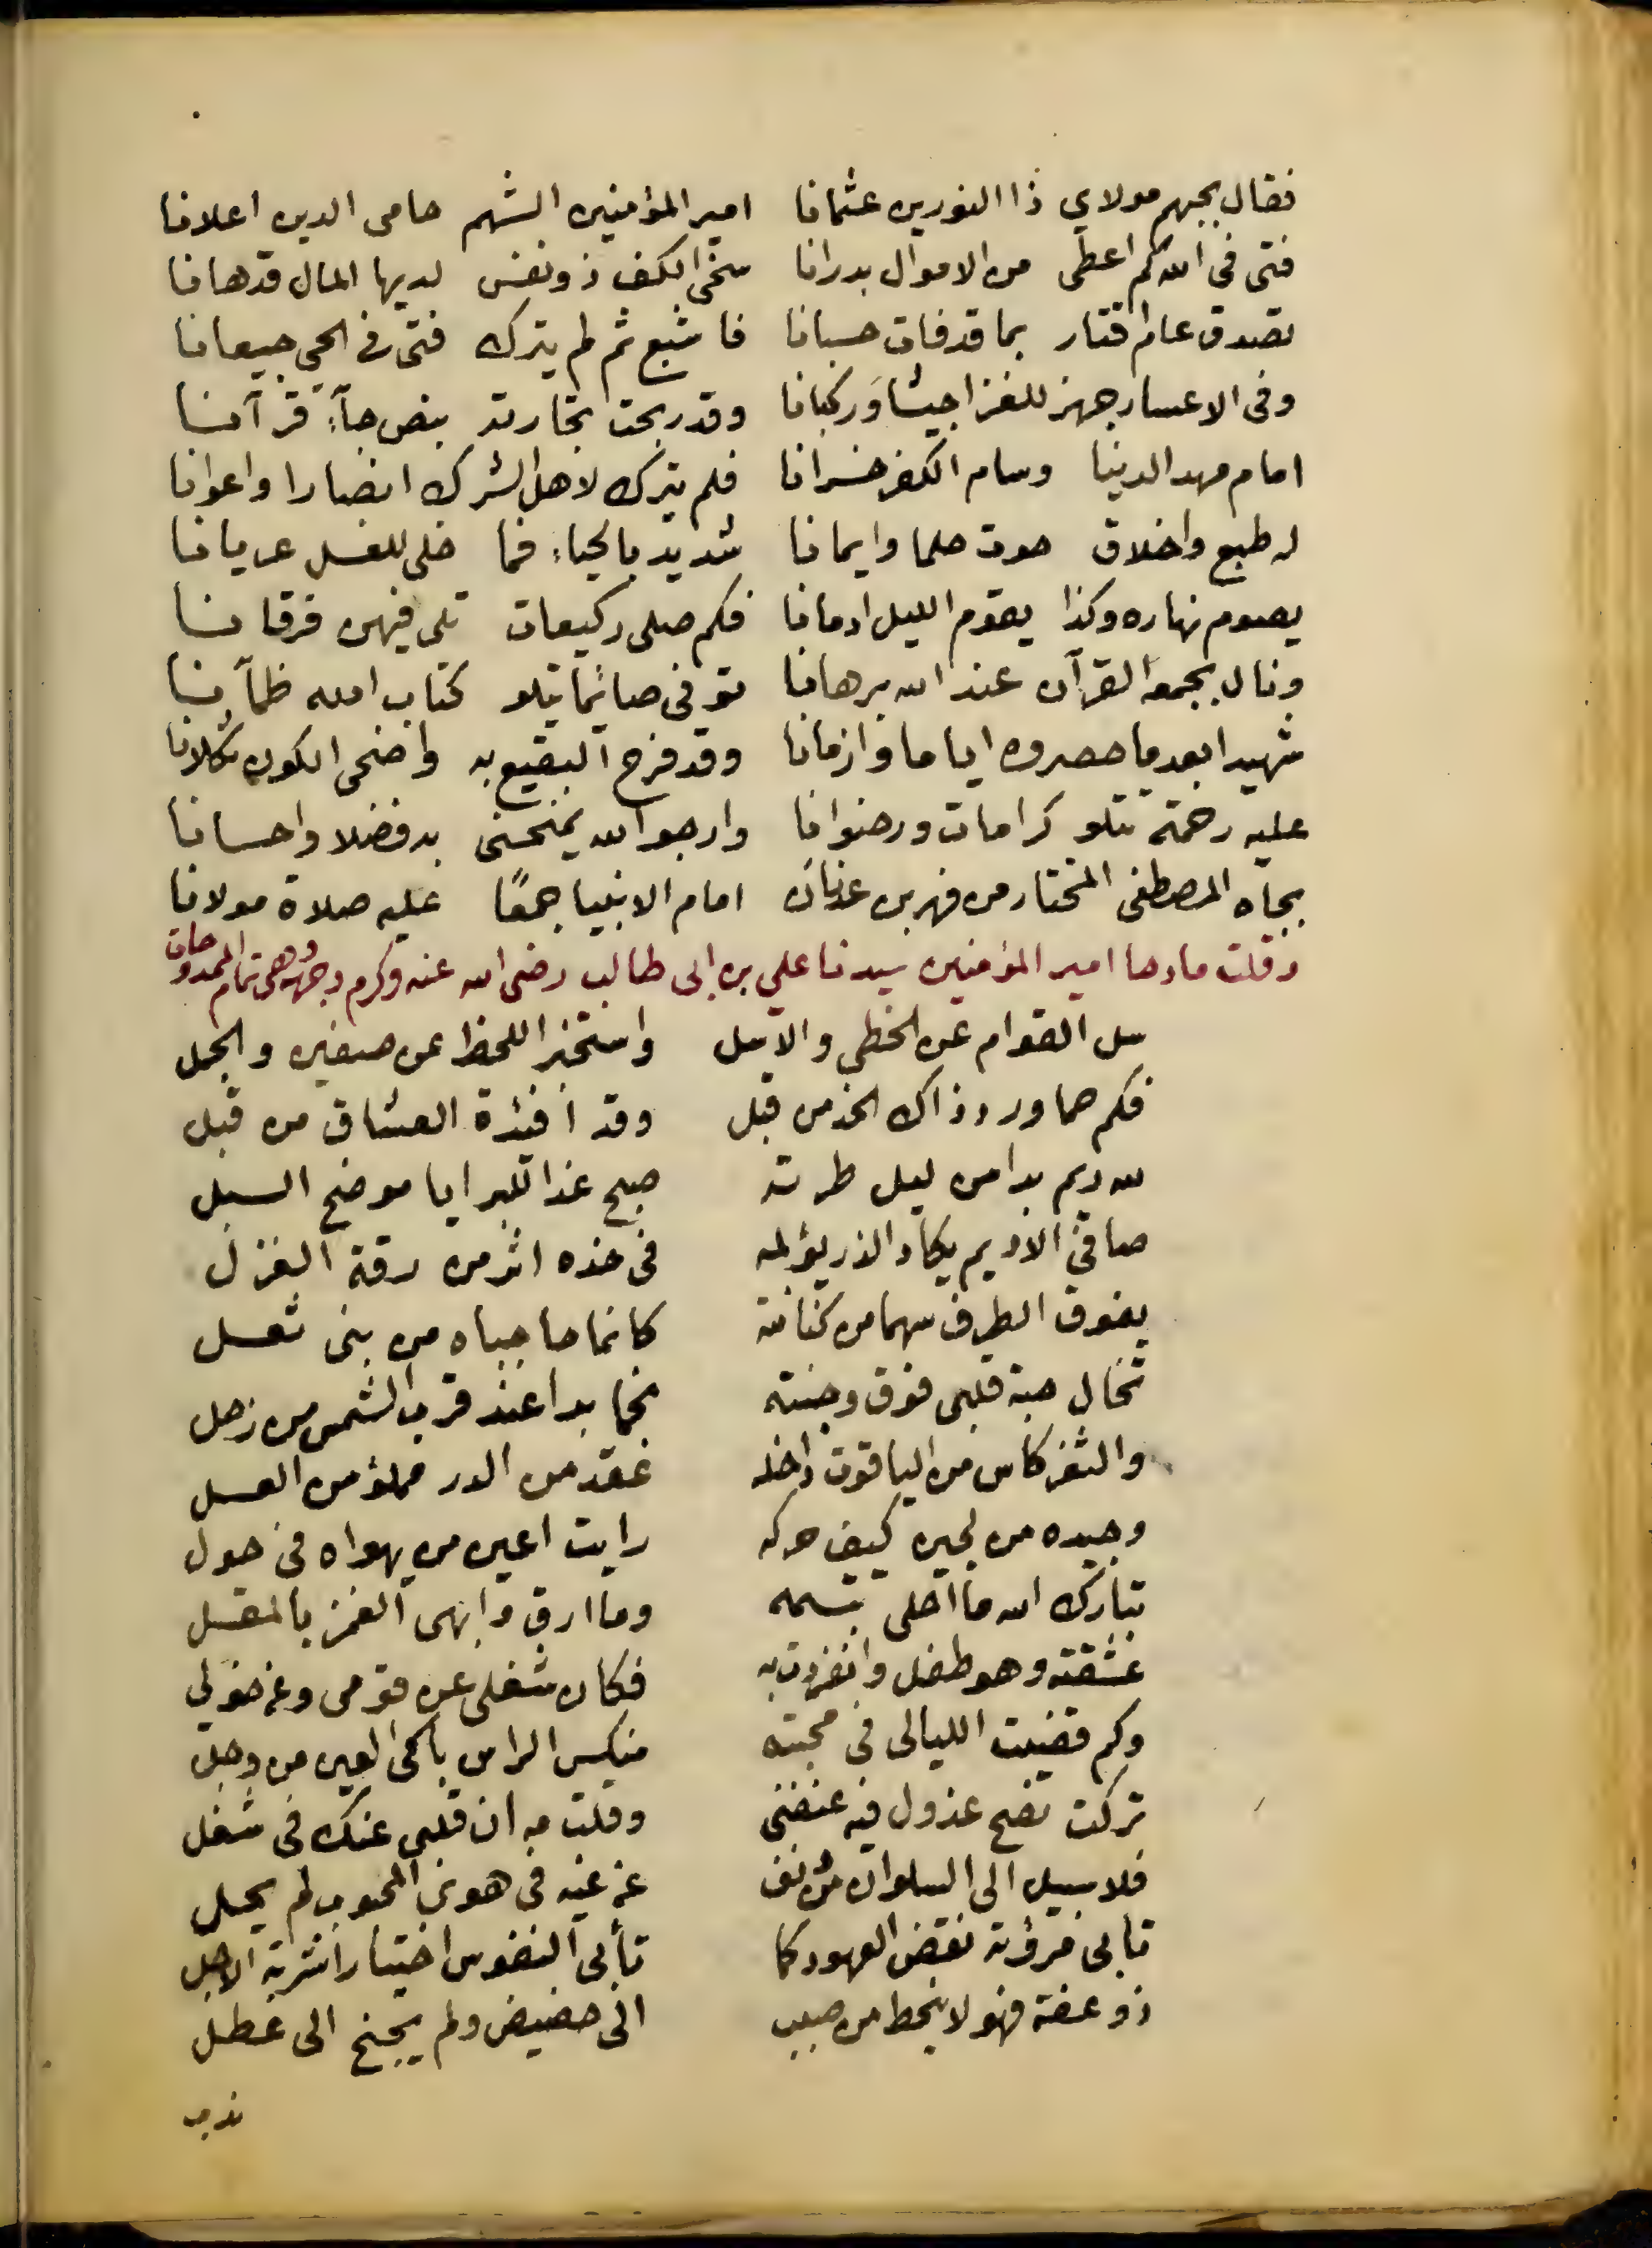 فقال بحبهم مولاي ذا النورين عثمانا امير المؤمنين الشهم حامى الدين اعلانا
فتى فى الله كم اعطى من الاموال بدرانا سخى الكف ذو نفس لديها المال قد هانا
تصدق عام اقتار بما قد فات حسبانا فاشبع ثم لم يترك فتى فى الحى جيعانا
وفى الاعسار جهز للغزا جيشا وركبانا وقد ربحت تجارته بنص جآء قرآنا
امام مهد الدنيا وسام الكفر خسرانا فلم يترك لاهل الشرك انصارا واعوانا
له طبع واخلاق حوت حلما وايمانا شديد بالحياء فما خلى للغسل عريانا
يصوم نهاره وكذا يقوم الليل ادمانا فكم صلى ركيعات تلى فيهن فرقانا
ونال بجمعه القرآن عند الله برهانا توفى صائما يتلو كتاب الله ظمآنا
شهيدا بعد ما حصروه اياما وازمانا وقد فرح البقيع به واضحى الكون ثكلانا
عليه رحمة تتلو كرامات ورضوانا وارجو الله يمنحنى به فضلا واحسانا
بجاه المصطفى المختار من فهر بن عدنان امام الانبيا جمعًا عليه صلاة مولانا
وقلت مادحا امير المؤمنين سيدنا علي بن ابى طالب رضى الله عنه وكرم وجهه وهى تمام الممدوحات
سل القوام عن الخطى والاسل واستخبر اللحظ عن صفين والجمل
فكم حما ورد ذاك الخد من قبل وقد افئدة العشاق من قبل
لله ريم بدا من ليل طرته صبح غدا للبرايا موضح السبل
صافى الاديم يكاد الذر يؤلمه فى خده اثر من رقة الغزل
يفوق الطرف سهما من كنانته كانما حاجباه من بنى ثعل
تخال حبة قلبى فوق وجنته نجما بدا عند قرب الشمس من زحل
والثغر كاس من الياقوت داخله عقد من الدر مملؤ من العسل
وجيده من لجين كيف حركه رايت اعين من يهواه فى حول
تبارك الله ما احلى تبسمه وما ارق وابهى الغمز بالمقل
عشقته وهو طفل وانفردت به فكان شغلى عن قومى وعن خولي
وكم قضيت الليالى فى محبته منكس الراس باكى العين من وجل
تركت نصح عذول فيه عنفنى وقلت مه ان قلبى عنك فى شغل
فلا سبيل الى السلوان من دنف عن غيه فى هوى المحبوب لم يحل
تابى مروءته نقض العهود كما تأبى النفوس اختيارا شربة الاجل
ذو عفة فهو لا ينحط من صبب الى حضيض ولم يجنح الى عطل
ندب